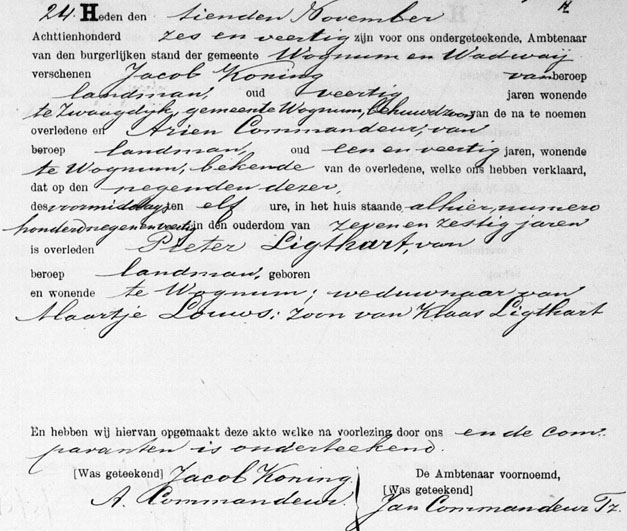 24. Heden den tienden November
Achttienhonderd zes en veertig zijn voor ons ondergeteekende, Ambtenaar
van den burgerlijken stand der gemeente Wognum en Wadway
verschenen Jacob Koning van beroep
landman, oud veertig jaren wonende
te Zwaagdijk, gemeente Wognum, behuwdzoon van de na te noemen
overledene en Arien Commandeur, van
beroep landman, oud een en veertig jaren, wonende
te Wognum, bekende van de overledene, welke ons hebben verklaard,
dat op den negenden dezer,
des voormiddags ten elf ure, in het huis staande alhier, numero
honderdnegenenveertig in den ouderdom van zeven en zestig jaren
is overleden Pieter Ligthart, van
beroep landman, geboren
en wonende te Wognum; weduwnaar van
Maartje Louws; zoon van Klaas Ligthart
En hebben wij hiervan opgemaakt deze akte welke na voorlezing door ons en de com-
paranten is onderteekend.
[Was geteekend] Jacob Koning
A. Commandeur.
De Ambtenaar voornoemd,
[Was geteekend]
Jan Commandeur Tz.